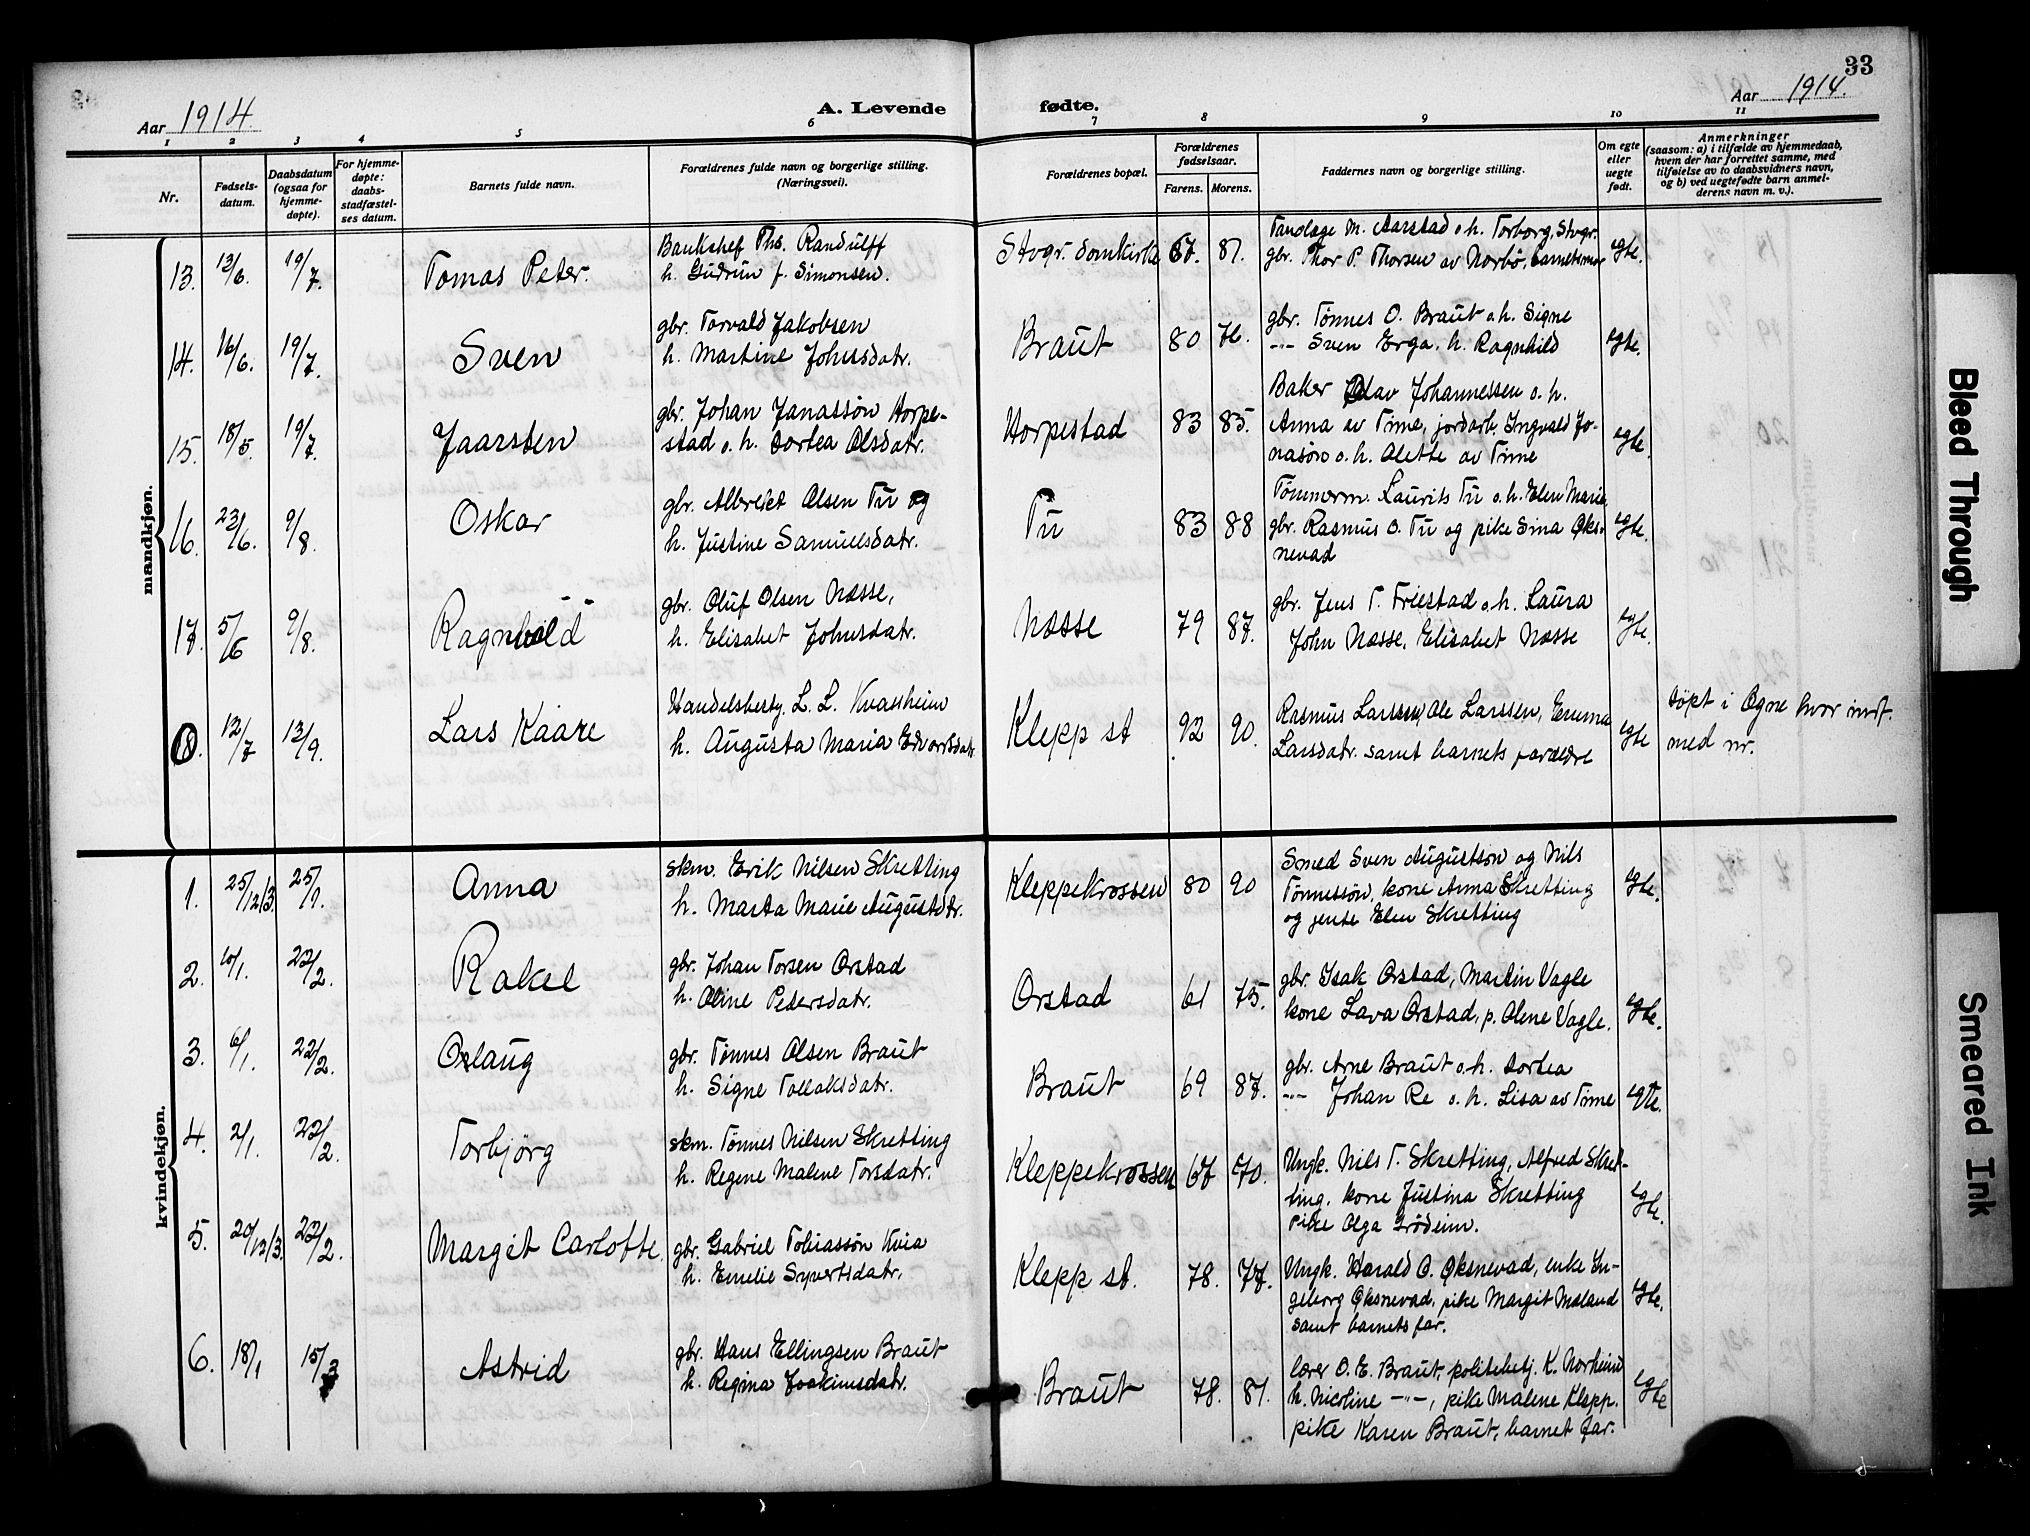 33
Aar 1914 A. Levende fødte. Aar 1914.
1 2 3 4 5 6 7 8 9 10 11
Nr.
Fødsels-
datum.
Daabsdatum
(ogsaa for
hjemme-
døpte).
For hjemme-
døpte:
daabs-
stadfæstel-
ses datum.
Barnets fulde navn.
Forældrenes fulde navn og borgerlige stilling.
(Næringsvei).
Forældrenes bopæl.
Forældrenes
fødselsaar.
Farens. Morens.
Faddernes navn og borgerlige stilling.
Om egte
eller
uegte
født.
Anmerkninger
(saasom: a) i tilfælde av hjemmedaab,
hvem der har forrettet samme, med
tilføielse av to daabsvidners navn,
og b) ved uegtefødte barn anmel-
derens navn m. v.).
mandkjøn.
13. 13/6. 19/7. Tomas Peter.
Bankchef Ths. Randulff
h. Gudrun f. Simonsen.
Stvgr. domkirke 87. 81.
Tandlæge M. Aarstad o.h. Torborg, Stvgr.
gbr. Thor P. Thorsen av Norbø, barnets mor
egte.
14. 16/6. 19/7. Sven
gbr. Torvald Jakobsen
h. Martine Johnsdatr.
Braut 80 76.
gbr. Tønnes O. Braut o.h. Signe
-"- Sven Erga. h. Ragnhild
egte.
15. 18/5. 19/7. Jaarsten
gbr. Johan Jonassøn Horpe-
stad o. h. Dortea Olsdatr.
Horpestad 83 85.
Baker Olav Johannessen o. h.
Anna av Time, jordarb. Ingvald Jo-
nasøn o. h. Olette av Time
egte.
16. 23/6. 9/8. Oskar
gbr. Albreket Olsen Tu og
h. Justine Samuelsdatr.
Tu 83 88
Tømmerm. Laurits Tu o.h. Elen Marie,
gbr. Rasmus O. Tu og pike Sina Øks-
nevad
egte.
17. 5/6 9/8. Ragnvald
gbr. Oluf Olsen Næsse,
h. Elisabet Johnsdatr.
Næsse 79 87.
gbr. Jens T. Friestad o.h. Laura
John Næsse, Elisabet Næsse
egte.
18. 12/7 13/9. Lars Kaare
Handelsbesty. L. L. Kvassheim
h. Augusta Maria Edvardsdatr.
Klepp st 92 90.
Rasmus Larssen, Ole Larssen, Emma
Larsdatr. samt barnets forældre
egte
døpt i Ogne hvor indf.
med nr.
kvindekjøn.
1. 25/12/3. 25/1. Anna
skm. Erik Nilsen Skretting
h. Marta Marie Augustdtr.
Kleppekrossen 80 90
Smed Sven Augustson og Nils
Tønnessøn, kone Anna Skretting
og jente Elen Skretting
egte.
2. 10/1. 22/2. Rakel
gbr. Johan Torsen Orstad
h. Oline Petersdatr.
Orstad 61 75.
gbr. Isak Orstad, Martin Vagle
kone Lava Orstad, p. Olene Vagle.
egte.
3. 6/1. 22/2. Oslaug
gbr. Tønnes Olsen Braut
h. Signe Tollaksdatr.
Braut 69 87.
gbr. Arne Braut o.h. Dortea
-"- Johan Re o.h. Lisa av Time
egte.
4. 2/1. 22/2. Torbjørg
skm. Tønnes Nilsen Skretting
h. Regene Malene Torsdatr.
Kleppekrossen 67 70.
Ungk. Nils T. Skretting, Alfred Skret-
ting, kone Justina Skretting
Pike Olga Grødeim.
egte.
5. 20/12/3. 22/2. Margit Carlotte.
gbr. Gabriel Tobiassøn Kvia
h. Emelie Syvertsdatr.
Klepp st. 78. 77.
Ungk. Harald O. Øksnevad, enke In-
geborg Øksnevad, pike Margit Mæland
samt barnets far.
egte.
6. 18/1 15/3 Astrid
gbr. Hans Ellingsen Braut
h. Regina Joakimsdatr.
Braut 78. 81.
lærer O. E. Braut, politibetj. K. Norheim
h. Nicoline -"-, pike Malene Klepp.
pike Karen Braut, barnet far.
egte
Bleed Through
Smeared Ink